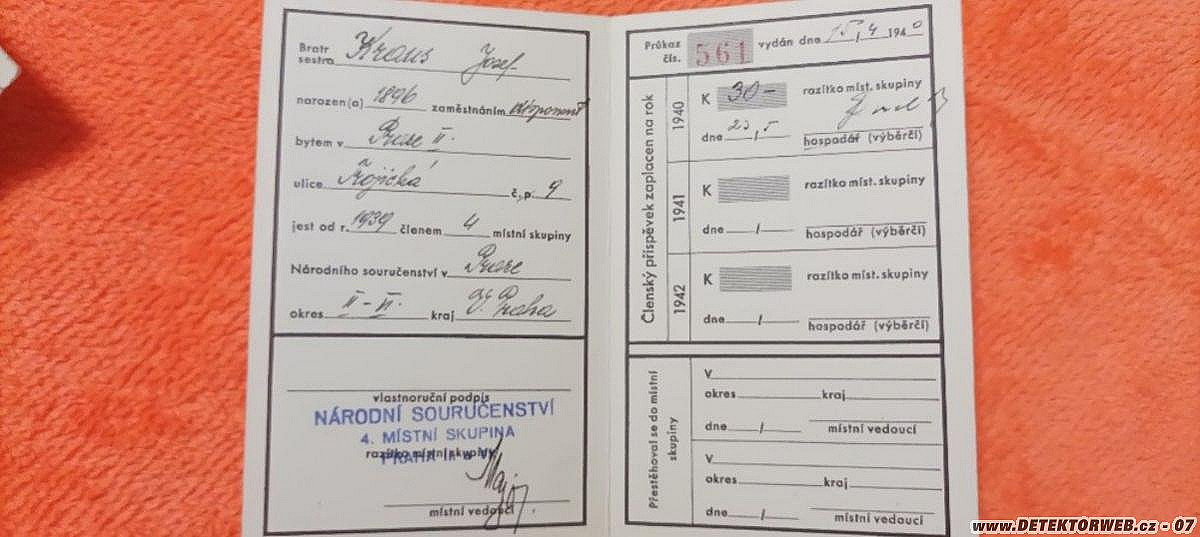 Bratr
sestra Kraus Josef
narozen(a) 1896 zaměstnáním
bytem v Praze II.
ulice Trojická č. p. 9
jest od r. 1939 členem 4 místní skupiny
Národního souručenství v Praze
okres II - VI. kraj Praha
vlastnoruční podpis
NÁRODNÍ SOURUČENSTVÍ
4. MÍSTNÍ SKUPINA
razítko místní skupiny
PRAHA II a VI
místní vedoucí
Průkaz
čís. 561 vydán dne 15, 4 1940
Členský příspěvek zaplacen na rok
1940
K 30- razítko míst. skupiny
dne 23, 5 hospodář (výběrčí)
1941
K razítko míst. skupiny
dne / hospodář (výběrčí)
1942
K razítko míst. skupiny
dne / hospodář (výběrčí)
Přestěhoval se do místní
skupiny
v
okres kraj
dne / místní vedoucí
v
okres kraj
dne / místní vedoucí
www.DETEKTORWEB.cz - 07